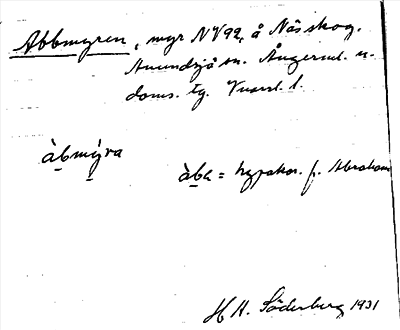 Abbmyren, myr NV92, å Näs skog,
Anundsjö sn. Ångerml. n.
doms. tg. 1.
àbmýra
àba = hypokor. f. Abraham
H. Söderberg 1931